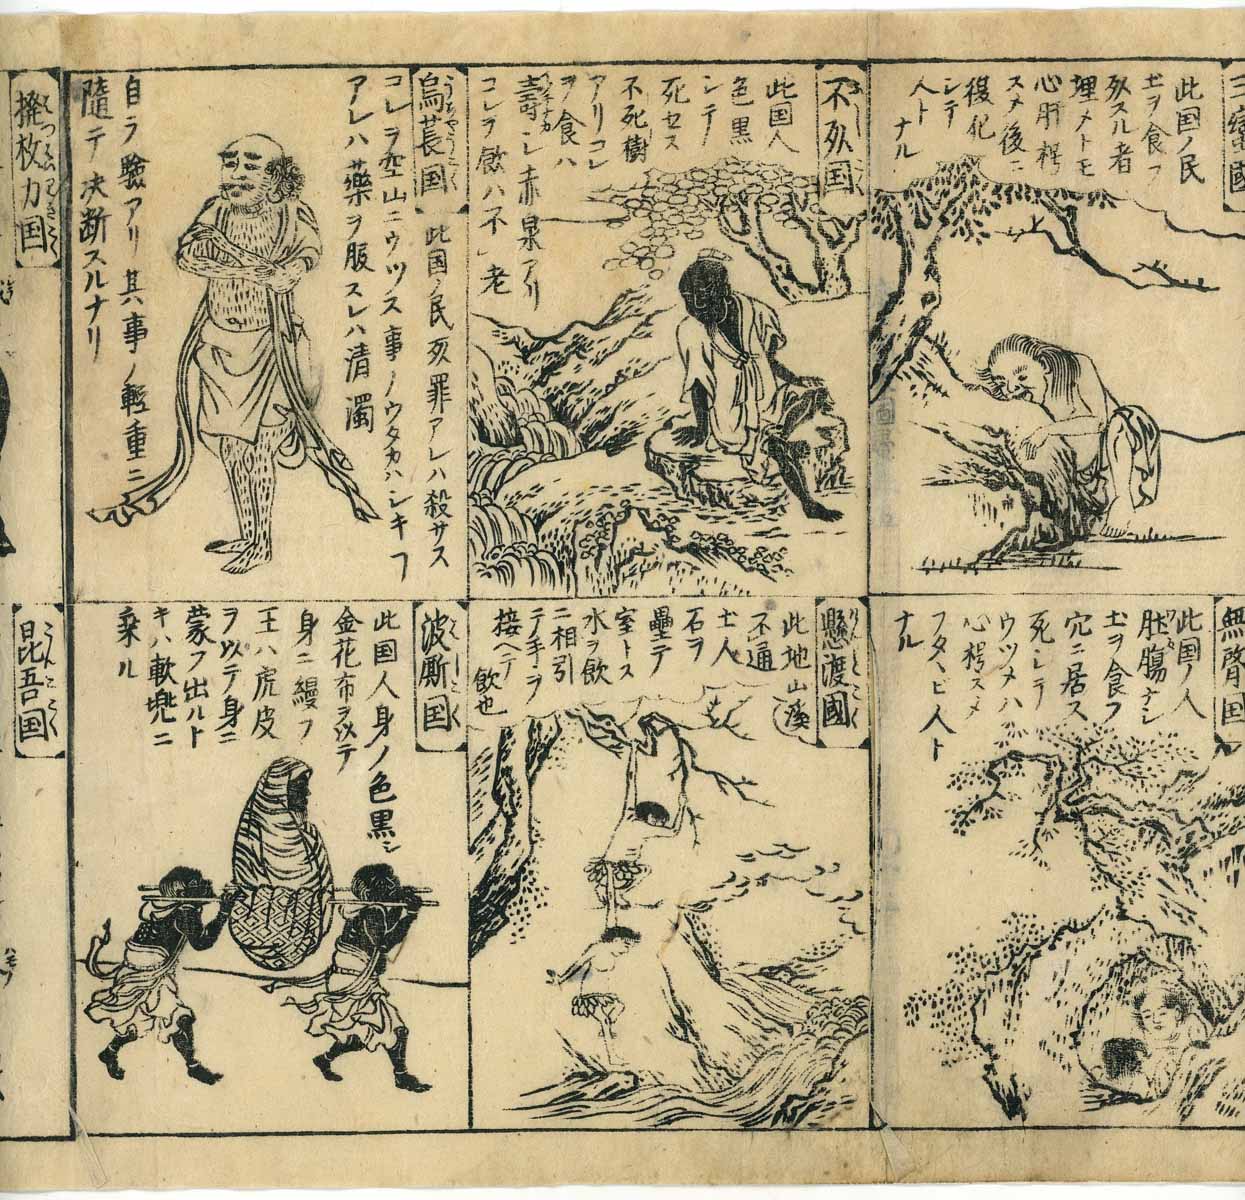 三蠻國
此国ノ民
土ヲ食フ
死スル者
埋メトモ
心肝朽
スメ後ニ
復化
シテ
人ト
ナル
不死国
此国人
色黒
シテ
死セス
不死樹
アリコレ
ヲ食ハ
壽シ赤泉アリ
コレヲ飲ハ不老
烏萇国
此国ノ民死罪アレハ殺サス
コレヲ空山ニウツス事ノウタカハシキフ
アレハ藥ヲ服スレハ清濁
自ラ驗アリ其事ノ輕重ニ
隨テ决断スルナリ
撥枚力国
無䏿国
此国ノ人
肚膓ナシ
土ヲ食フ
穴ニ居ス
死シテ
ウツメハ
心朽スメ
フタヽビ人ト
ナル
懸渡國
此地山溪
不通
土人
石ヲ
壘テ
室トス
水ヲ飲
ニ相引
テ手ヲ
接ヘテ
飲也
波厮国
此国人身ノ色黒シ
金花布ヲ以テ
身ニ縵フ
王ハ虎皮
ヲ以テ身ニ
蒙フ出ルト
キハ軟兜ニ
乘ル
昆吾国
こんごこく